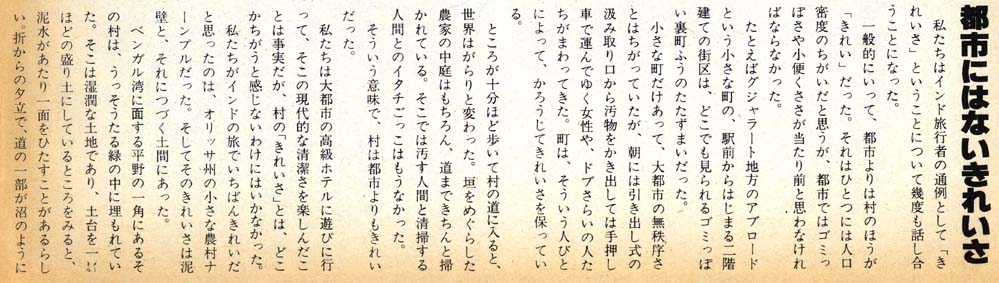 都市にはないきれいさ
私たちはインド旅行者の通例として「き
れいさ」ということについて幾度も話し合
うことになった。
一般的にいって、都市よりは村のほうが
「きれい」だった。それはひとつには人口
密度のちがいだと思うが、都市ではゴミっ
ぽさや小便くささが当たり前と思わなけれ
ばならなかった。
たとえばグジャラート地方のアブロード
という小さな町の、駅前からはじまる二階
建ての街区は、どこでも見られるゴミっぽ
い裏町ふうのたたずまいだった。
小さな町だけあって、大都市の無秩序さ
とはちがっていたが、朝には引き出し式の
汲み取り口から汚物をかき出しては手押し
車で運んでゆく女性や、ドブさらいの人た
ちがまわってきた。町は、そういう人びと
によって、かろうじてきれいさを保ってい
る。
ところが十分ほど歩いて村の道に入ると、
世界はがらりと変わった。垣をめぐらした
農家の中庭はもちろん、道まできちんと掃
かれている。そこでは汚す人間と清掃する
人間とのイタチごっこはもうなかった。
そういう意味で、村は都市よりもきれい
だった。
私たちは大都市の高級ホテルに遊びに行
って、そこの現代的な清潔さを楽しんだこ
とは事実だが、村の「きれいさ」とは、どこ
かちがうと感じないわけにはいかなかった。
私たちがインドの旅でいちばんきれいだ
と思ったのは、オリッサ州の小さな農村ナ
ーンブルだった。そしてそのきれいさは泥
壁と、それにつづく土間にあった。
ベンガル湾に面する平野の一角にあるそ
の村は、うっそうたる緑の中に埋もれてい
た。そこは湿潤な土地であり、土台を一㍍
ほどの盛り土にしているところをみると、
泥水があたり一面をひたすことがあるらし
い。折からの夕立で、道の一部が沼のように